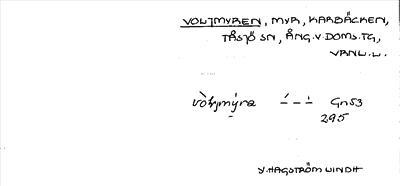 VOLJMYREN, MYR, KARBÄCKEN,
TÅSJÖ SN, ÅNG. V. DOMS. TG,
VRNL.L.
vòljmýra --- Gn53
295
V. HAGSTRÖM LINDH